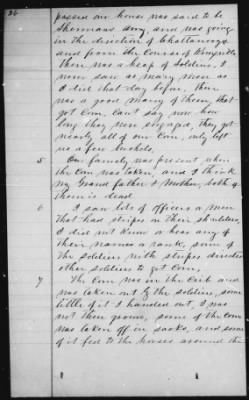 26
passed our house was said to be
Shermans army, and was going
in the direction of Chattanooga
and from the Course of
There was a heap of Soldiers, I
never saw as many men as
I did that day before, there
was a good many of them, that
got Corn, Can't say now how
long they were engaged, they got
nearly all of our Corn, only left
us a few bushels.
5 Our family was present when
the Corn was taken, and I think
my Grand father & Mother, both of
them is dead
6 I saw lots of officers & men
that had stripes on their shoulders,
I did not know or hear any of
their names or rank, some of
the soldiers with stripes directed
other soldiers to get Corn,
7 The Corn was in the Crib and
was taken out by the soldiers, some
little of it I handed out, I was
not then grown, some of the corn
was taken off in sacks, and some
of it fed to the horses around the